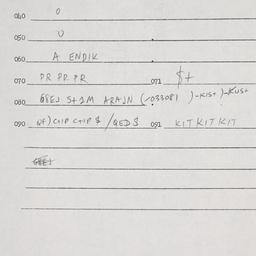 040 0
050 U
060 A ENDIK
070 PR PR PR 071 $+
080 GEEJ S+2M ARAJN (/033081 )-KIST)-KUS+
090 WF) CHIP CHIP $ /QED $ 091 KIT KIT KIT